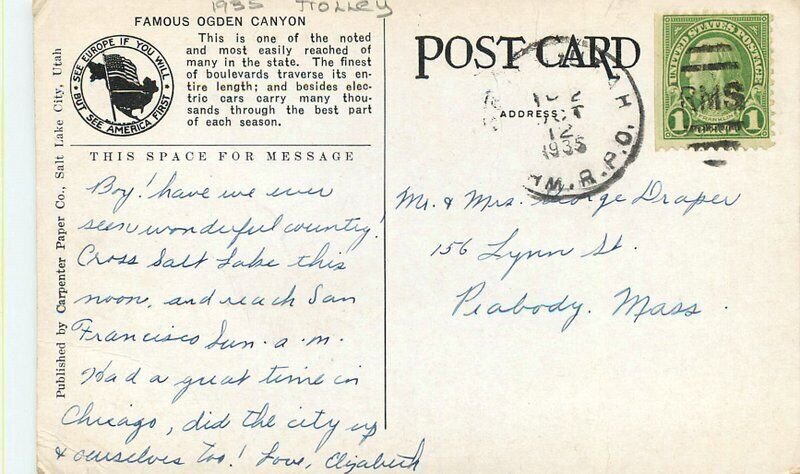 1935 Trolley
FAMOUS OGDEN CANYON
This is one of the noted
and most easily reached of
many in the state. The finest
of boulevards traverse its en-
tire length; and besides elec-
tric cars carry many thou-
sands through the best part
of each season.
SEE EUROPE IF YOU WILL
BUT SEE AMERICA FIRST
THIS SPACE FOR MESSAGE
Published by Carpenter Paper Co., Salt Lake City, Utah
Boy! have we ever
seen wonderful country!
Cross Salt Lake this
noon, and reach San
Francisco Sun. a.m.
Had a great time in
Chicago, did the city up
& ourselves too! Love, Elizabeth
POST CARD
ADDRESS
OCT
12
1935
R.P.O.
RMS
UNITED STATES POSTAGE
FRANKLIN
1 1
Mr. & Mrs. George Draper
156 Lynn St.
Peabody. Mass.